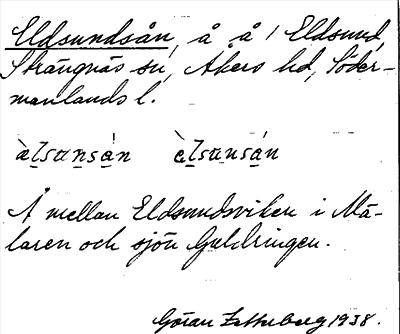 Eldsundsån, å å i Eldsund,
Strängnäs sn, Åkers hd, Söder-
manlands l.
àl̠su̠nsá̠n èl̠su̠nsá̠n
Å mellan Eldsundsviken i Mä-
laren och sjön Guldringen.
Göran Zetterberg 1938.